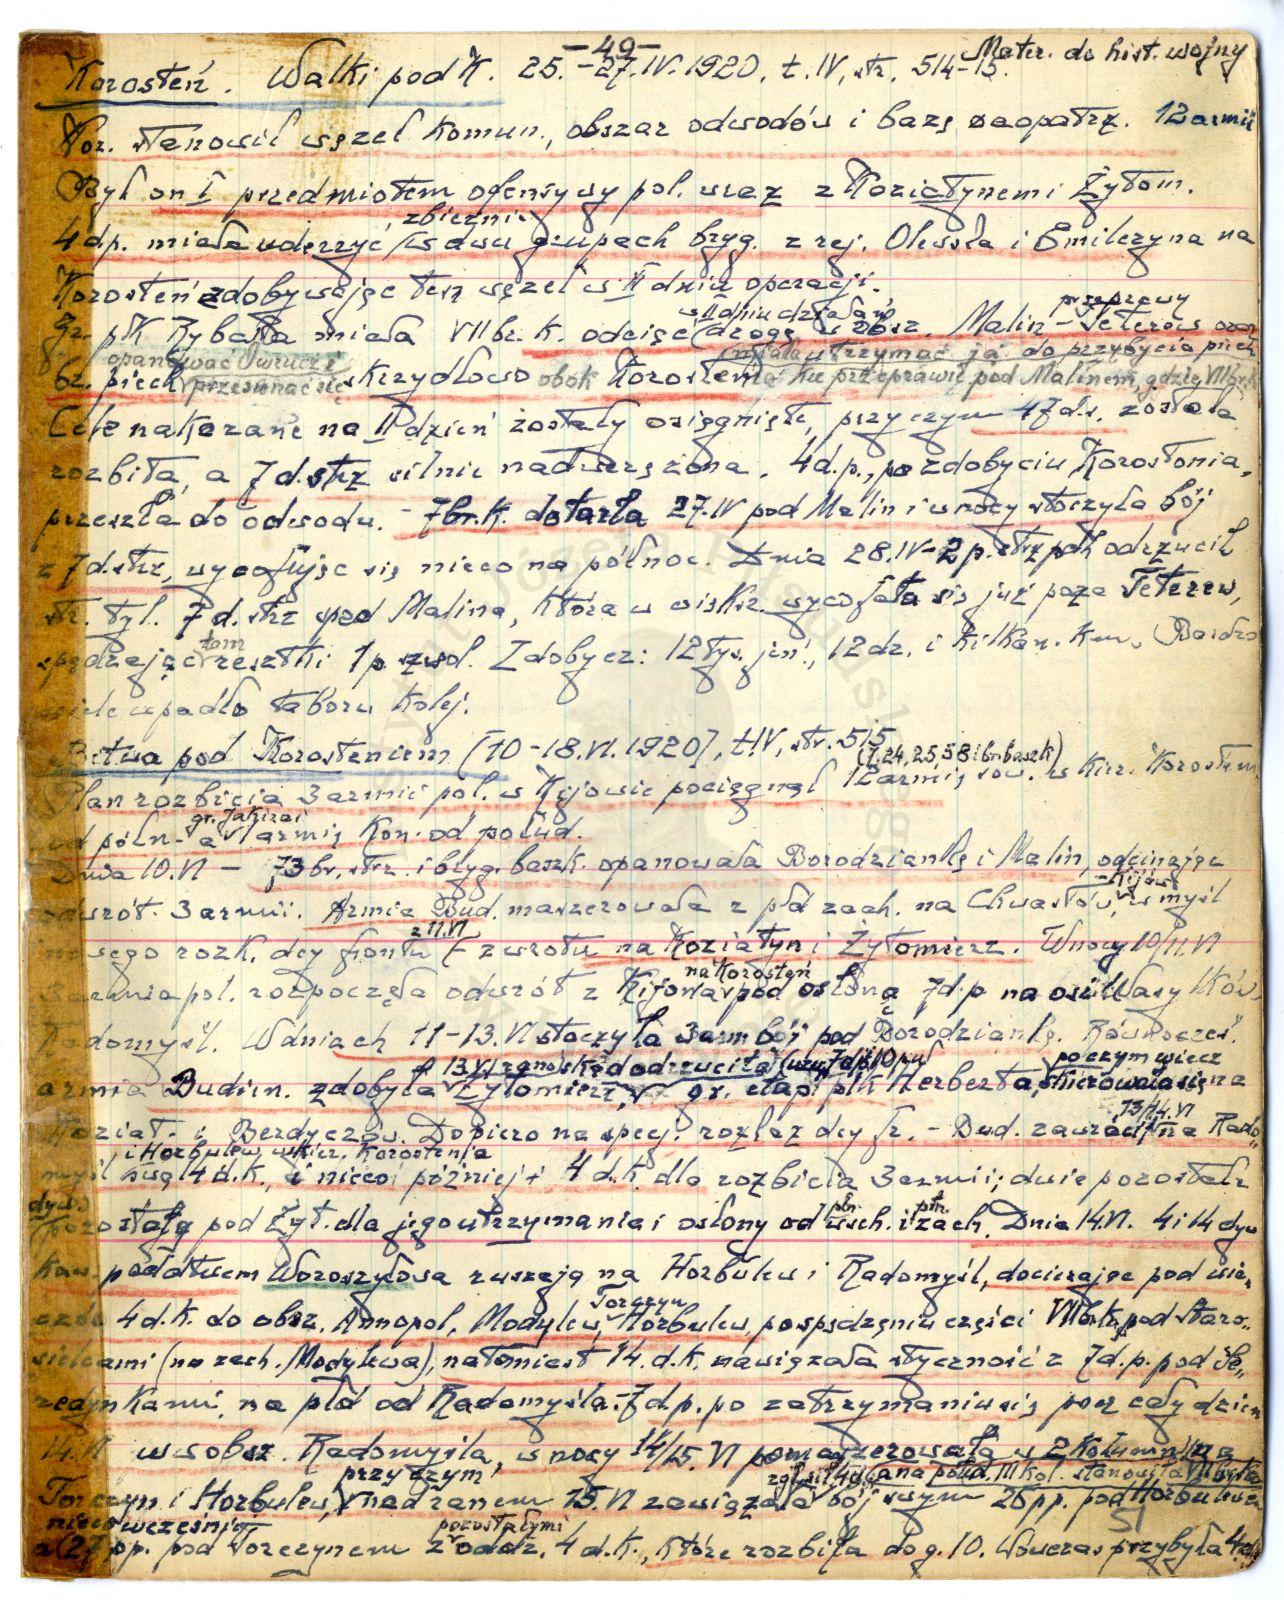 -49-
Mater. do hist. wojny
Korosteń. Walki pod K. 25.-27.IV.1920, t. IV, str. 514-15.
Kor. stanowił węzeł komun., obszar odwodów i bazę zaopatrz. 12 armii
Był on I przedmiotem ofensywy pol. wraz z Koziatynem i Żytom.
zbieżnie
4 d.p. miała uderzyć w dwu grupach bryg. z rej. Olewska i Emilczyna na
Korosteń zdobywając ten węzeł w II dniu operacji.
w II dniu działań przeprawy
Gr. płk Rybaka miała VII br. k. odciąć drogę w obsz. Malin-Teterew oraz
opanować Owrucz i miała utrzymać ją do przybycia piech.
br. piech. przesunąć się skrzydłowo obok Korostenia ku przeprawie pod Malinem, gdzie VII br. k.
Cele nakazane na II dzień zostały osiągnięte, przy czym 47 d.s. została
rozbita, a 7 d. strz silnie nadwerężona. 4 d.p., po zdobyciu Korostenia,
przeszła do odwodu. - 7 br. k. dotarła 27.IV pod Malin i w nocy stoczyła bój
z 7 d. strz, wycofując się nieco na północ. Dnia 28.IV - 2 p. strz pdh odrzucił
str. tyl. 7 d. strz spod Malina, która w większ. wycofała się już poza Teterew,
tam
spędzając resztki 1 p. szwol. Zdobycz: 12 tys. jeń., 12 dz. i kilkan. km. Bardzo
wiele wpadło taboru kolej.
Bitwa pod Korosteniem (10-18.VI.1920), t. IV, str. 515
(7, 24, 25, 58 i br. baszk)
Plan rozbicia 3 armii pol. w Kijowie pociągnął 12 armię sow. w kier. Korosteń
gr. Jakira i
od półn. a armię Kon. od połud.
Dnia 10.VI - 73 br. strz. i bryg. baszk. opanowała Borodziankę i Malin, odcinając
-Kijów
odwrót 3 armii. Armia Bud. maszerowała z płd zach. na Chwastów, w myśl
z 11.VI
nowego rozk. dcy frontu zwrotu na Koziatyn i Żytomierz. W nocy 10/11.VI
na Korosteń
3 armia pol. rozpoczęła odwrót z Kijowa pod osłoną 7 d.p. na osi Wasylków,
Radomyśl. W dniach 11-13.VI stoczyła 3 arm bój pod Borodzianką. Równocześ.
13.VI rano skąd odrzuciła po czym wiecz
armia Budion. zdobyła Żytomierz, gr. etap. płk Herberta, skierowała się na
13/14.VI
Koziat. i Berdyczów. Dopiero na specj. rozkaz dcy fr. - Bud. zawrócił na Rado-
i Horbulew w kier. Korostenia
myśl swą 4 d.k., i nieco później + 4 d.k. dla rozbicia 3 armii; dwie pozostałe
dyw.
pozostały pod Żyt. dla jego utrzymania i osłony od wsch. i zach. Dnia 14.VI. 4 i 14 dyw
kaw. pod dtwem Woroszyłowa ruszają na Horbulew i Radomyśl, docierając pod wie-
Torczyn
czór 4 d.k. do obsz. Annopol, Modylew, Horbulew po spędzeniu części VII br. k. pod Staro-
sielcami (na zach. Modylewa), natomiast 14. d.k. nawiązała styczność z 7 d.p. pod Se-
redynkami, na płd od Radomyśla. - 7 d.p. po zatrzymaniu się przez cały dzień
14.VI w obsz. Radomyśla, w nocy 14/15.VI pomaszerowała w 2 kolumn na
przy czym III kol. stanowiła VII br. k.
Torczyn i Horbulew, nad ranem 15.VI zawiązała bój swym 26 pp. pod Horbulewem
51
nieco wcześniej pozostałymi
a 25 pp. pod Torczynem z oddz. 4 d.k., które rozbiła do g. 10. Wówczas przybyła 4 d.k.